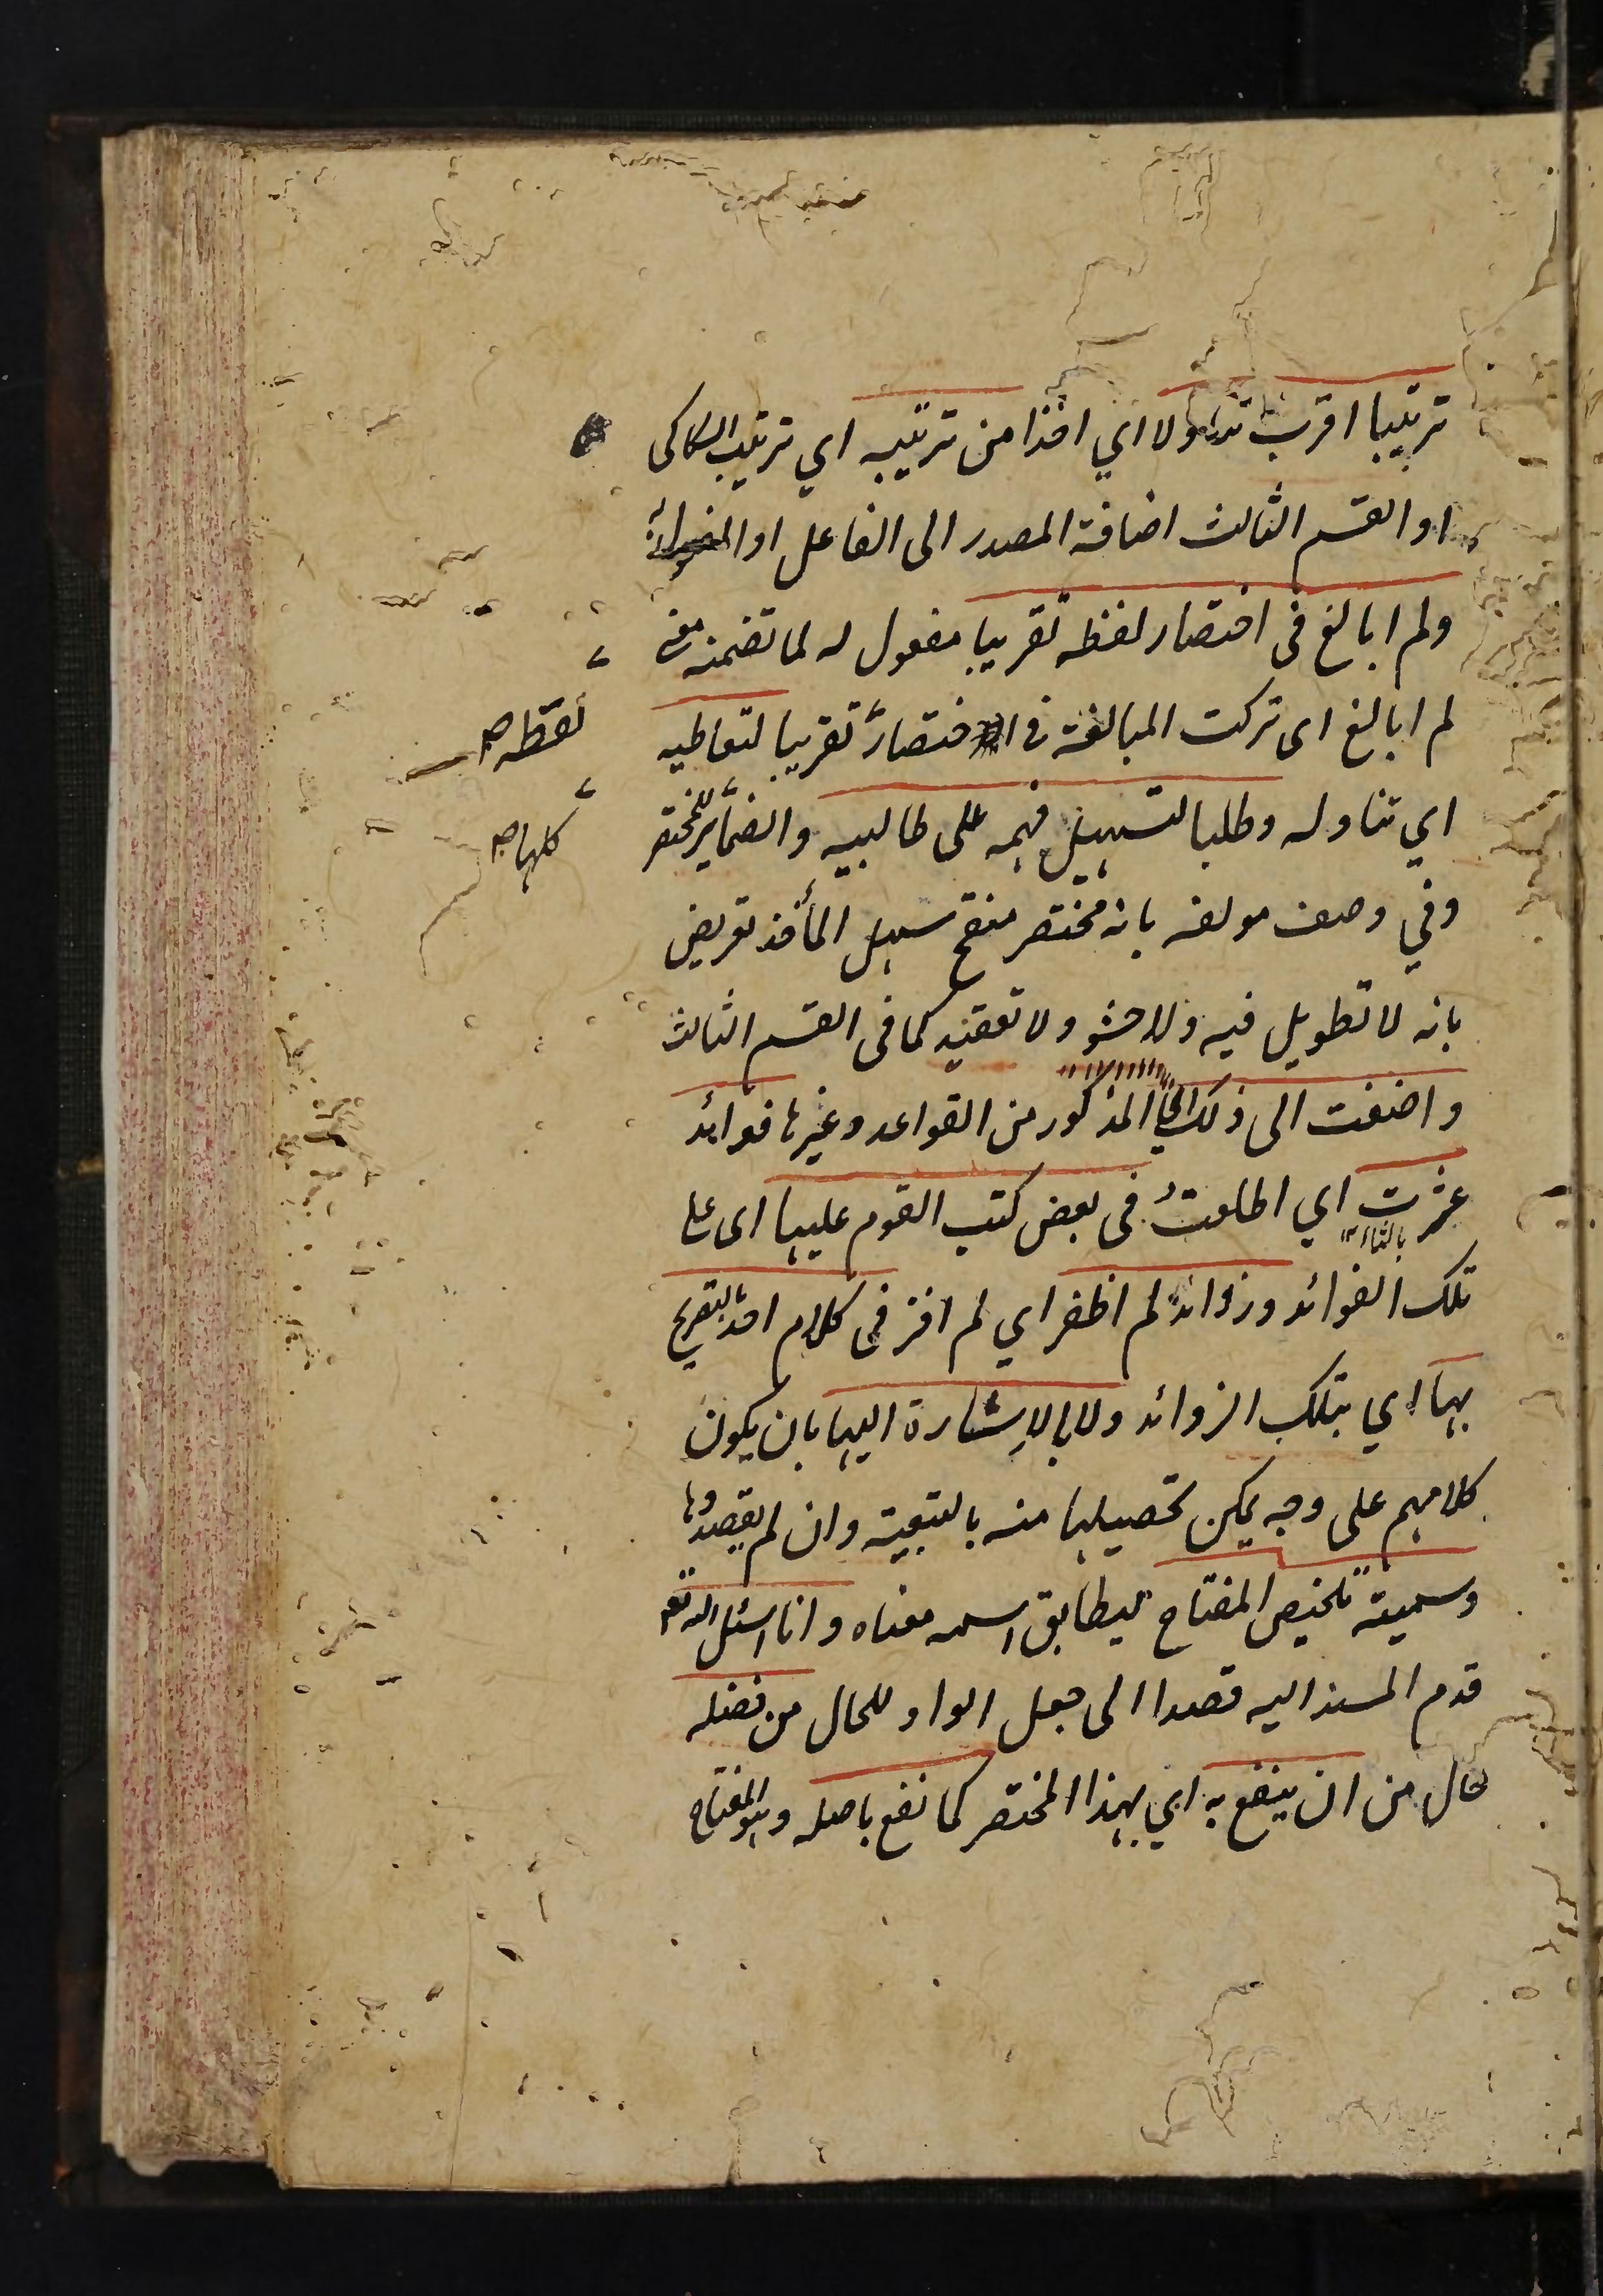 ترتيبا اقرب تناولا اي اخذا من ترتيبه اي ترتيب السكاكى
او القسم الثالث اضافة المصدر الى الفاعل او المفعول به
ولم ابالغ فى اختصار لفظه تقريبا مفعول له لما تضمنه معنى
لم ابالغ اى تركت المبالغة فى اختصاره تقريبا لتعاطيه
لفظه صح
اي تناوله وطلبا لتسهيل فهمه على طالبيه والضمائر للمختصر
كلها صح
وفي وصف مولفه بانه مختصر منقح سهل المأخذ تعريض
بانه لا تطويل فيه ولا حشو ولا تعقيد كما فى القسم الثالث
واضفت الى ذلك المذكور من القواعد وغيرها فوائد
عثرت اي اطلعتُ فى بعض كتب القوم عليها اى على
بالثاء ١٢
تلك الفوائد وزوائد لم اظفر اي لم افز فى كلام احد بالتصريح
بها اي بتلك الزوائد ولا بالإشارة اليها بان يكون
كلامهم على وجه يمكن تحصيلها منه بالتبعية وان لم يقصدوها
وسميته تلخيص المفتاح ليطابق اسمه معناه وانا اسئل الله تعم
قدم المسند اليه قصدا الى جعل الواو للحال من فضله
حال من ان ينفع به اي بهذا المختصر كما نفع باصله وهو المفتاح